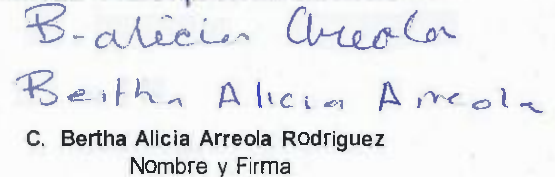 B-alicia Arreola
Bertha Alicia Arreola
C. Bertha Alicia Arreola Rodriguez
Nombre y Firma